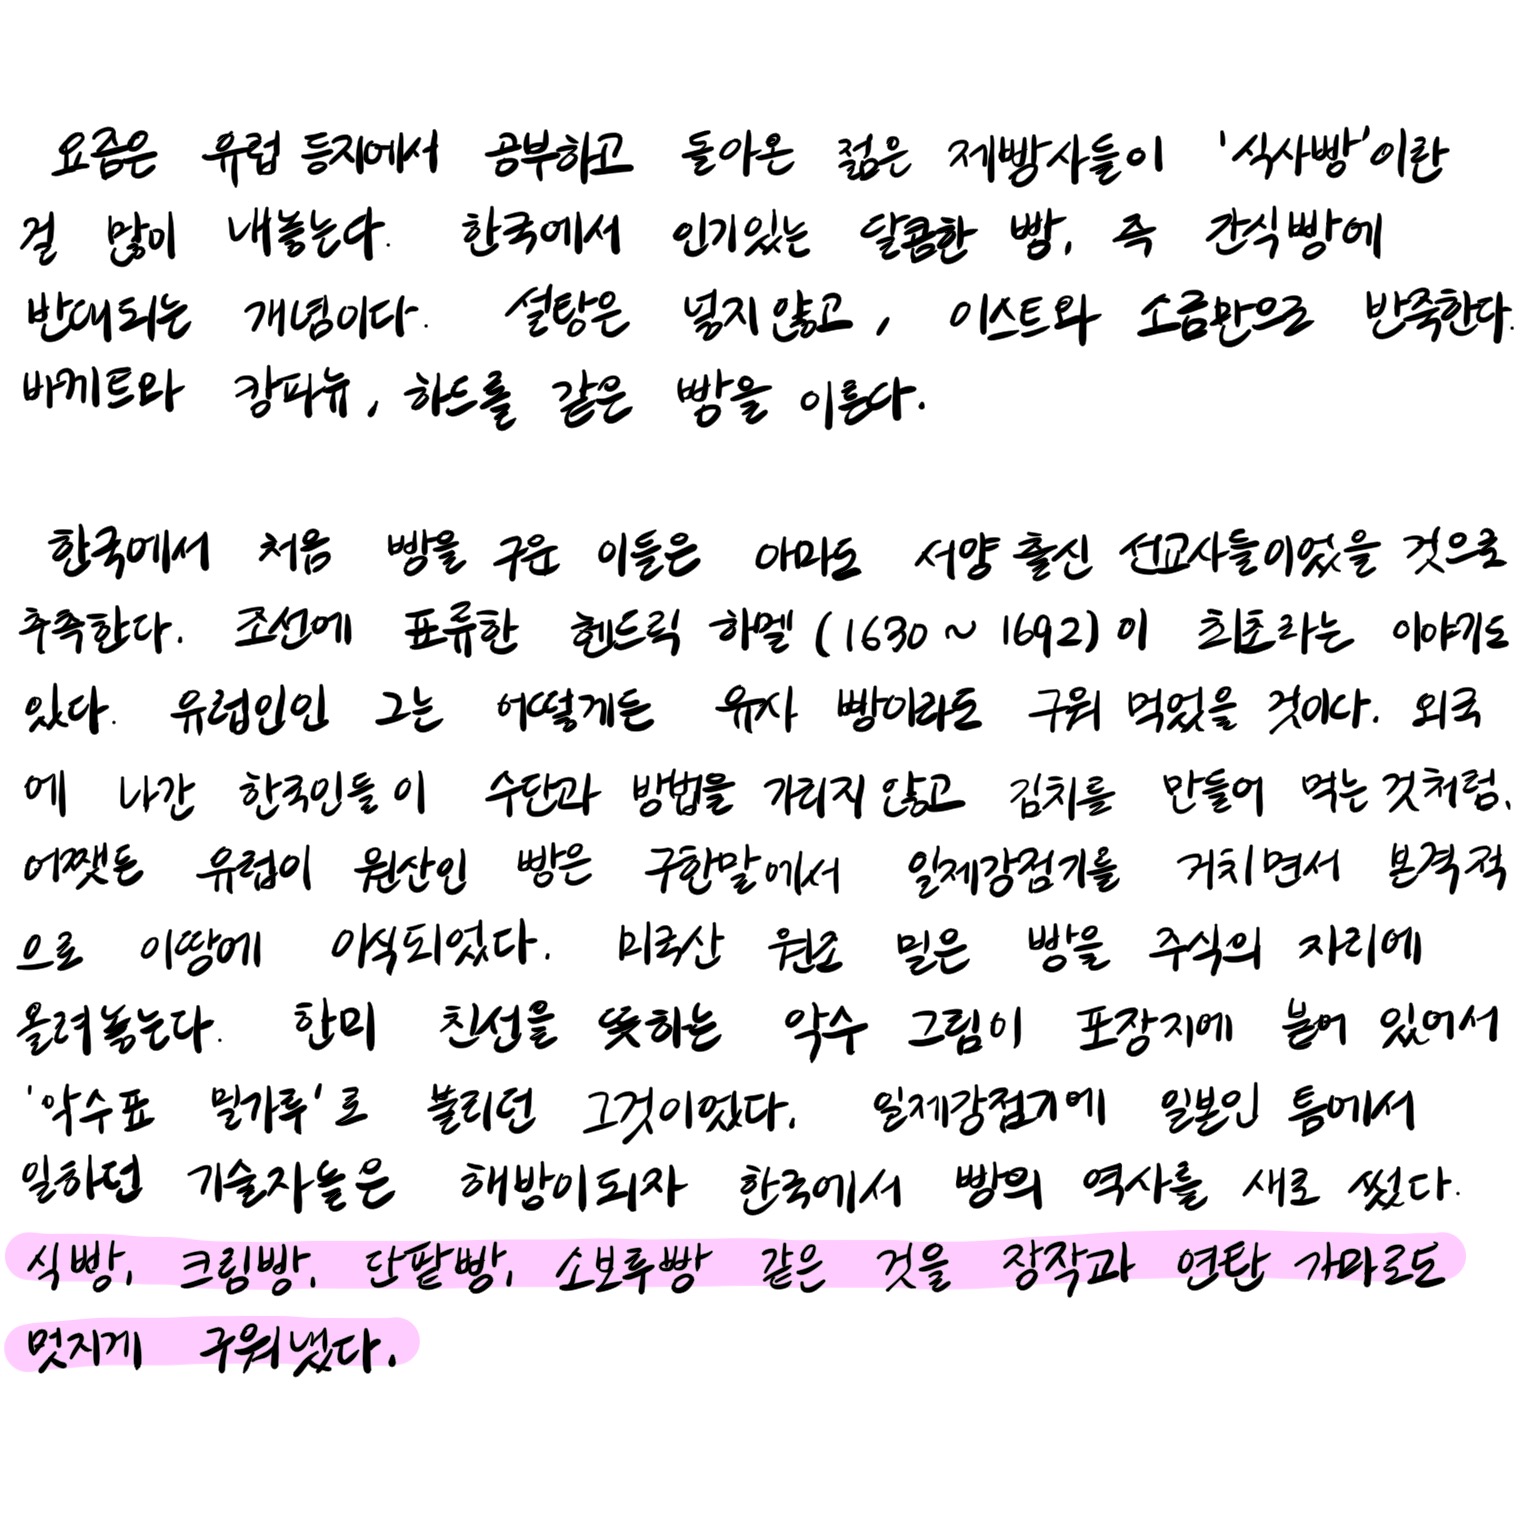 요즘은 유럽 등지에서 공부하고 돌아온 젊은 제빵사들이 '식사빵'이란
걸 많이 내놓는다. 한국에서 인기있는 달콤한 빵, 즉 간식빵에
반대되는 개념이다. 설탕은 넣지 않고, 이스트와 소금만으로 반죽한다.
바게트와 캉파뉴, 하드롤 같은 빵을 이른다.
한국에서 처음 빵을 구운 이들은 아마도 서양 출신 선교사들이었을 것으로
추측한다. 조선에 표류한 헨드릭 하멜 (1630 ~ 1692)이 최초라는 이야기도
있다. 유럽인인 그는 어떻게든 유사 빵이라도 구워 먹었을 것이다. 외국
에 나간 한국인들이 수단과 방법을 가리지 않고 김치를 만들어 먹는 것처럼.
어쨌든 유럽이 원산인 빵은 구한말에서 일제강점기를 거치면서 본격적
으로 이땅에 이식되었다. 미국산 원조 밀은 빵을 주식의 자리에
올려놓는다. 한미 친선을 뜻하는 악수 그림이 포장지에 붙어 있어서
'악수표 밀가루'로 불리던 그것이었다. 일제강점기에 일본인 틈에서
일하던 기술자들은 해방이되자 한국에서 빵의 역사를 새로 썼다.
식빵, 크림빵, 단팥빵, 소보루빵 같은 것을 장작과 연탄 가마로도
멋지게 구워냈다.